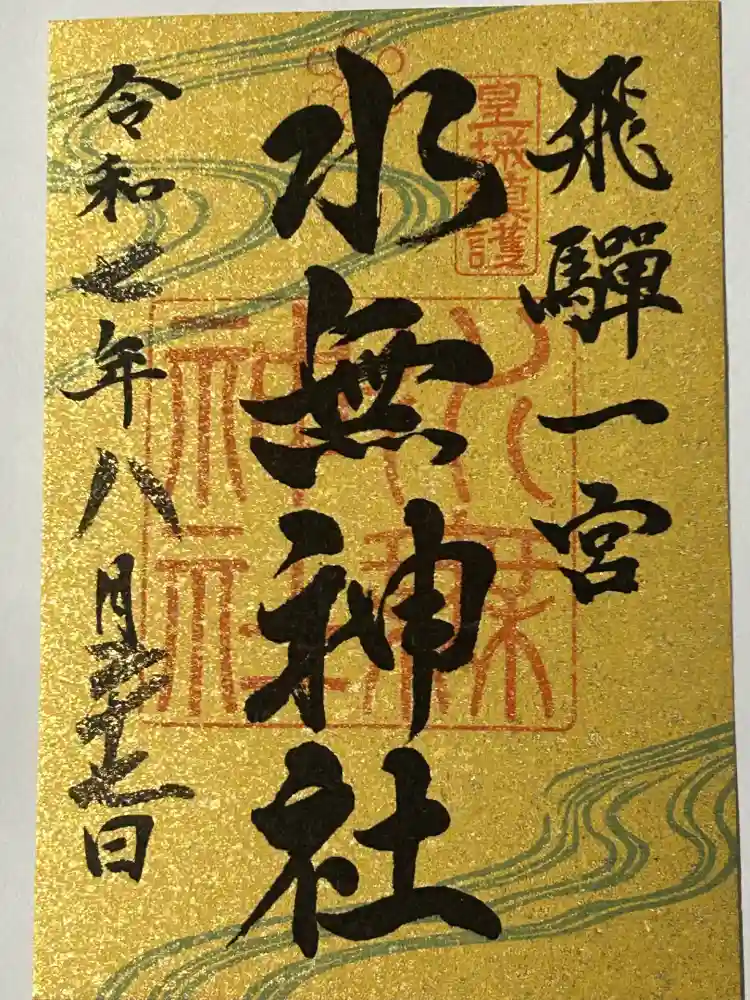 飛騨一宮
皇城鎮護
水無神社
水無神社
令和七年八月二十七日